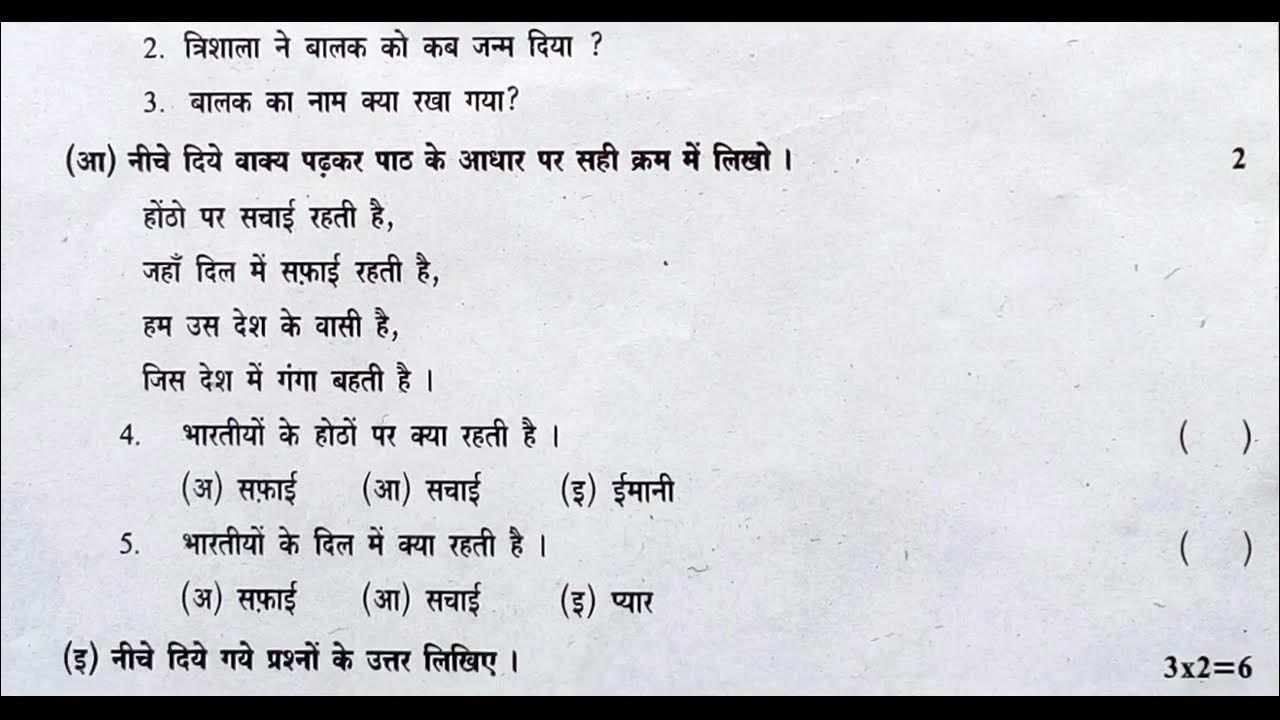 2. त्रिशाला ने बालक को कब जन्म दिया ?
3. बालक का नाम क्या रखा गया?
(आ) नीचे दिये वाक्य पढ़कर पाठ के आधार पर सही क्रम में लिखो । 2
होंठो पर सचाई रहती है,
जहाँ दिल में सफ़ाई रहती है,
हम उस देश के वासी है,
जिस देश में गंगा बहती है ।
4. भारतीयों के होठों पर क्या रहती है । ( )
(अ) सफ़ाई (आ) सचाई (इ) ईमानी
5. भारतीयों के दिल में क्या रहती है । ( )
(अ) सफ़ाई (आ) सचाई (इ) प्यार
(इ) नीचे दिये गये प्रश्नों के उत्तर लिखिए । 3x2=6